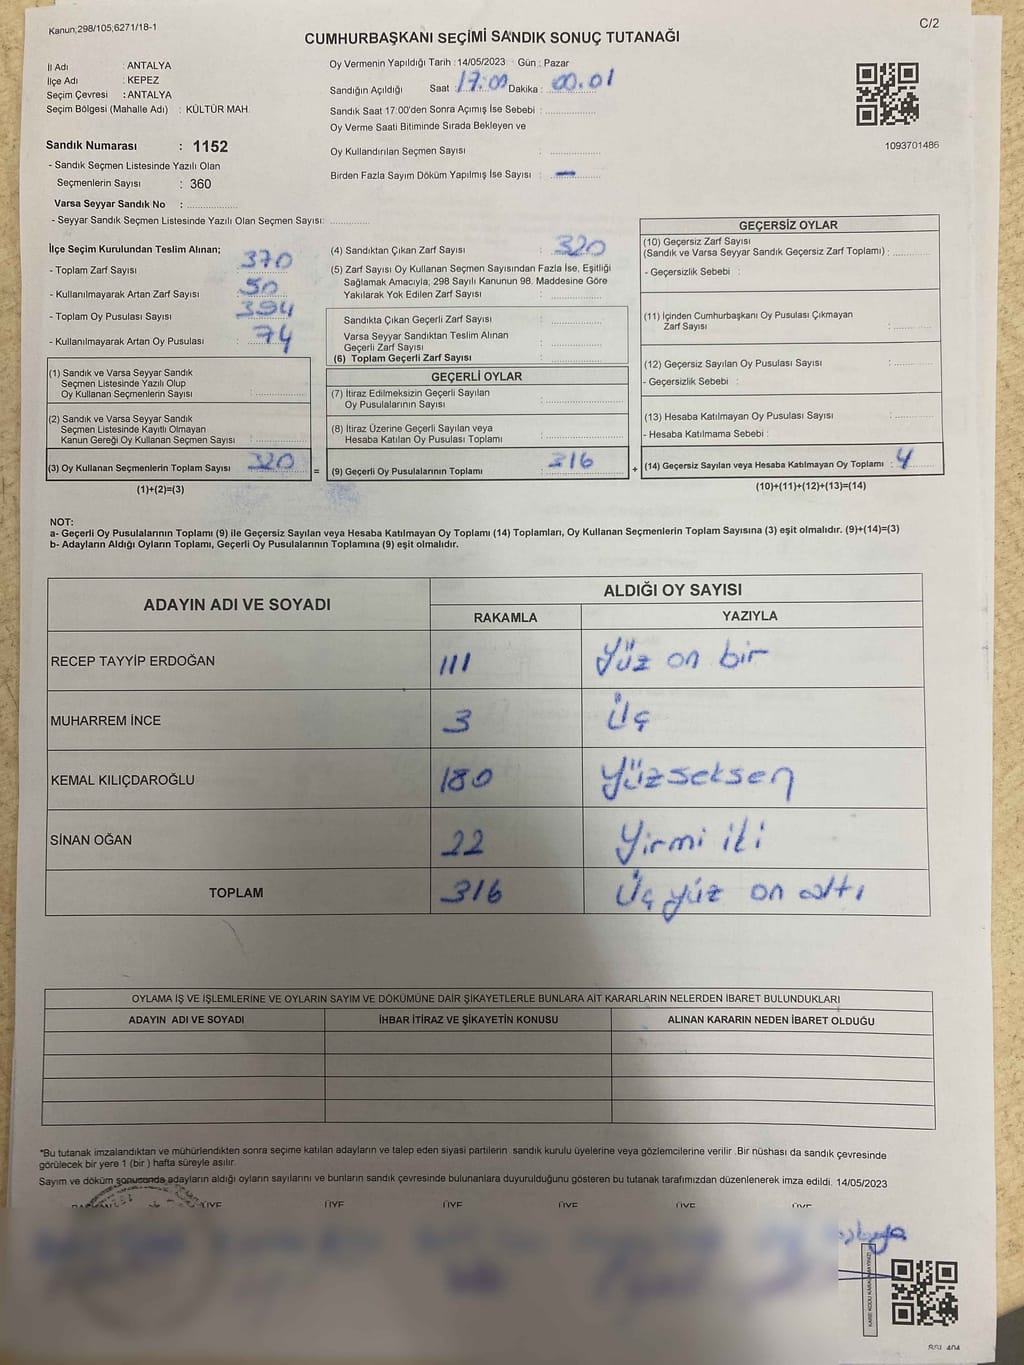 Kanun;298/105;6271/18-1
C/2
CUMHURBAŞKANI SEÇİMİ SANDIK SONUÇ TUTANAĞI
İl Adı : ANTALYA
İlçe Adı : KEPEZ
Seçim Çevresi : ANTALYA
Seçim Bölgesi (Mahalle Adı) : KÜLTÜR MAH.
Oy Vermenin Yapıldığı Tarih :14/05/2023 Gün : Pazar
Sandığın Açıldığı Saat : 17:00 Dakika : 00.01
Sandık Saat 17:00'den Sonra Açımış İse Sebebi :
Oy Verme Saati Bitiminde Sırada Bekleyen ve
Oy Kullandırılan Seçmen Sayısı :
Birden Fazla Sayım Döküm Yapılmış İse Sayısı : —
1093701486
Sandık Numarası : 1152
- Sandık Seçmen Listesinde Yazılı Olan
Seçmenlerin Sayısı : 360
Varsa Seyyar Sandık No :
- Seyyar Sandık Seçmen Listesinde Yazılı Olan Seçmen Sayısı:
İlçe Seçim Kurulundan Teslim Alınan;
- Toplam Zarf Sayısı : 370
- Kullanılmayarak Artan Zarf Sayısı : 50
- Toplam Oy Pusulası Sayısı : 394
- Kullanılmayarak Artan Oy Pusulası : 74
(1) Sandık ve Varsa Seyyar Sandık
Seçmen Listesinde Yazılı Olup
Oy Kullanan Seçmenlerin Sayısı :
(2) Sandık ve Varsa Seyyar Sandık
Seçmen Listesinde Kayıtlı Olmayan
Kanun Gereği Oy Kullanan Seçmen Sayısı :
(3) Oy Kullanan Seçmenlerin Toplam Sayısı : 320
(1)+(2)=(3)
(4) Sandıktan Çıkan Zarf Sayısı : 320
(5) Zarf Sayısı Oy Kullanan Seçmen Sayısından Fazla İse, Eşitliği
Sağlamak Amacıyla; 298 Sayılı Kanunun 98. Maddesine Göre
Yakılarak Yok Edilen Zarf Sayısı :
Sandıkta Çıkan Geçerli Zarf Sayısı :
Varsa Seyyar Sandıktan Teslim Alınan
Geçerli Zarf Sayısı :
(6) Toplam Geçerli Zarf Sayısı :
GEÇERLİ OYLAR
(7) İtiraz Edilmeksizin Geçerli Sayılan
Oy Pusulalarının Sayısı :
(8) İtiraz Üzerine Geçerli Sayılan veya
Hesaba Katılan Oy Pusulası Toplamı :
= (9) Geçerli Oy Pusulalarının Toplamı : 316 +
GEÇERSİZ OYLAR
(10) Geçersiz Zarf Sayısı
(Sandık ve Varsa Seyyar Sandık Geçersiz Zarf Toplamı) :
- Geçersizlik Sebebi :
(11) İçinden Cumhurbaşkanı Oy Pusulası Çıkmayan
Zarf Sayısı :
(12) Geçersiz Sayılan Oy Pusulası Sayısı :
- Geçersizlik Sebebi :
(13) Hesaba Katılmayan Oy Pusulası Sayısı :
- Hesaba Katılmama Sebebi :
(14) Geçersiz Sayılan veya Hesaba Katılmayan Oy Toplamı : 4
(10)+(11)+(12)+(13)=(14)
NOT:
a- Geçerli Oy Pusulalarının Toplamı (9) ile Geçersiz Sayılan veya Hesaba Katılmayan Oy Toplamı (14) Toplamları, Oy Kullanan Seçmenlerin Toplam Sayısına (3) eşit olmalıdır. (9)+(14)=(3)
b- Adayların Aldığı Oyların Toplamı, Geçerli Oy Pusulalarının Toplamına (9) eşit olmalıdır.
ADAYIN ADI VE SOYADI
ALDIĞI OY SAYISI
RAKAMLA YAZIYLA
RECEP TAYYİP ERDOĞAN 111 Yüz on bir
MUHARREM İNCE 3 Üç
KEMAL KILIÇDAROĞLU 180 Yüzseksen
SİNAN OĞAN 22 Yirmi iki
TOPLAM 316 Üç yüz on altı
OYLAMA İŞ VE İŞLEMLERİNE VE OYLARIN SAYIM VE DÖKÜMÜNE DAİR ŞİKAYETLERLE BUNLARA AİT KARARLARIN NELERDEN İBARET BULUNDUKLARI
ADAYIN ADI VE SOYADI İHBAR İTİRAZ VE ŞİKAYETİN KONUSU ALINAN KARARIN NEDEN İBARET OLDUĞU
*Bu tutanak imzalandıktan ve mühürlendikten sonra seçime katılan adayların ve talep eden siyasi partilerin sandık kurulu üyelerine veya gözlemcilerine verilir .Bir nüshası da sandık çevresinde
görülecek bir yere 1 (bir ) hafta süreyle asılır.
Sayım ve döküm sonucunda adayların aldığı oyların sayılarını ve bunların sandık çevresinde bulunanlara duyurulduğunu gösteren bu tutanak tarafımızdan düzenlenerek imza edildi. 14/05/2023
ÜYE ÜYE ÜYE ÜYE ÜYE ÜYE